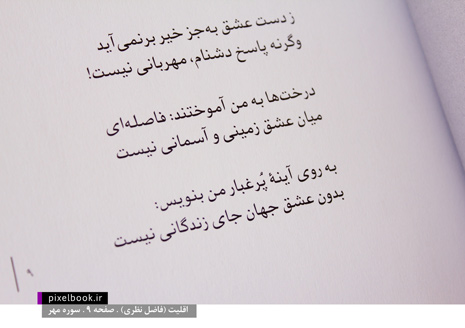 ز دست عشق به‌جز خیر برنمی‌آید
وگرنه پاسخ دشنام، مهربانی نیست!
درخت‌ها به من آموختند: فاصله‌ای
میان عشق زمینی و آسمانی نیست
به روی آینهٔ پُرغبار من بنویس:
بدون عشق جهان جای زندگانی نیست
۹
pixelbook.ir
اقلیت (فاضل نظری) . صفحه ۹ . سوره مهر